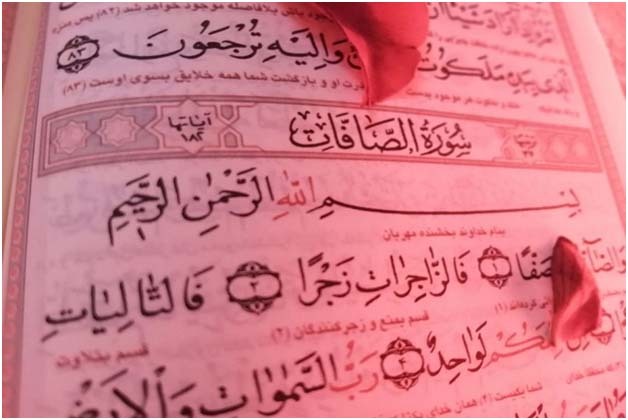 باش بلافاصله موجود خواهد شد (۸۲) پس منزه
مَلَكُوتُ وَإِلَيْهِ تُرْجَعُونَ ﴿۸۳﴾
او و بازگشت شما همه خلایق بسوی اوست (۸۳)
سُورَةُ الصَّافَّاتِ آیاتها ۱۸۲
بِسْمِ اللّٰهِ الرَّحْمٰنِ الرَّحِيمِ
بنام خداوند بخشنده مهربان
صَفًّا ﴿۱﴾ فَالزَّاجِرَاتِ زَجْرًا ﴿۲﴾ فَالتَّالِيَاتِ
(۱) قسم بمنع و زجر کنندگان (۲) قسم بتلاوت
لَوَاحِدٌ ﴿۴﴾ رَبُّ السَّمٰوَاتِ وَالْاَرْضِ
شما یکیست (۴) همان خدای